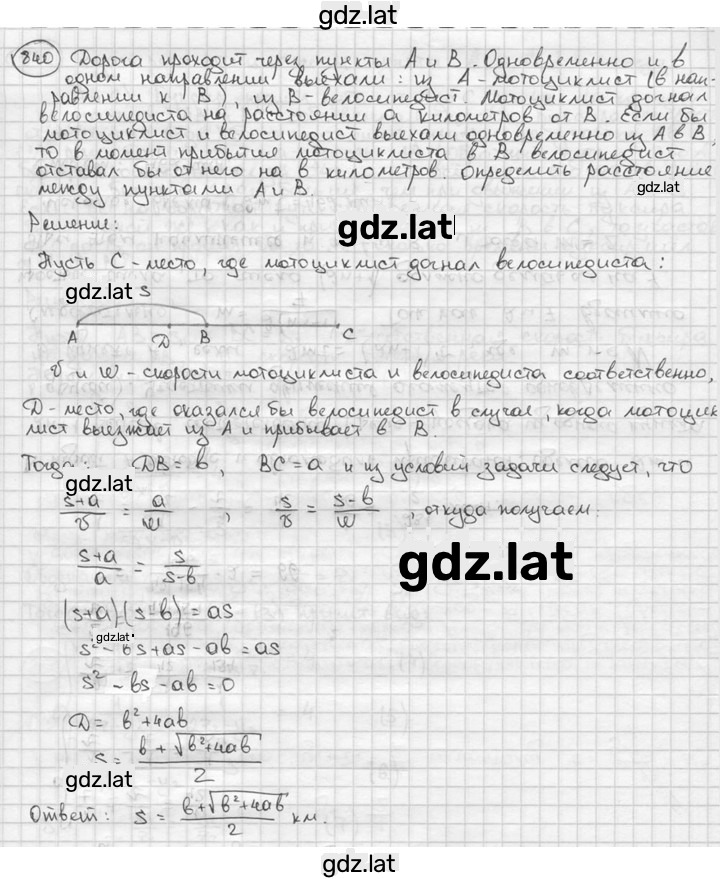 gdz.lat
840 Дорога проходит через пункты А и В. Одновременно и в
одном направлении выехали: из А - мотоциклист (в нап-
равлении к В), из В - велосипедист. Мотоциклист догнал
велосипедиста на расстоянии a километров от В. Если бы
мотоциклист и велосипедист выехали одновременно из А в В,
то в момент прибытия мотоциклиста в В велосипедист
отставал бы от него на b километров. Определить расстояние
между пунктами А и В.
gdz.lat
Решение:
gdz.lat
Пусть С - место, где мотоциклист догнал велосипедиста:
gdz.lat s
A D B C
v и w - скорости мотоциклиста и велосипедиста соответственно,
D - место, где оказался бы велосипедист в случае, когда мотоцик
лист выезжает из А и прибывает в В.
Тогда: DB = b, BC = a и из условия задачи следует, что
gdz.lat
(s+a)/v = a/w, s/v = (s-b)/w, откуда получаем:
(s+a)/a = s/(s-b)
gdz.lat
(s+a)(s-b) = as
gdz.lat
s² - bs + as - ab = as
s² - bs - ab = 0
D = b² + 4ab
s = (b + √(b²+4ab))/2
gdz.lat
Ответ: s = (b + √(b²+4ab))/2 км.
gdz.lat